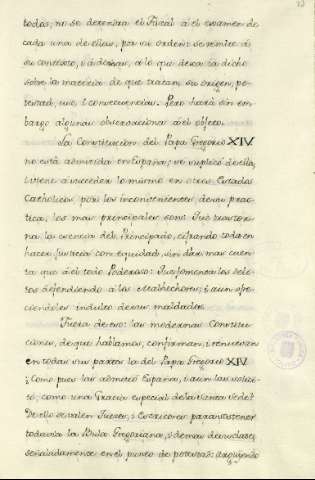 todas; no se detendra el Fiscal á el examen de
cada una de ellas, por su orden: se remite á
su contexto, i á demas, á lo que dexa ia dicho
sobre la materia de que tratan, su origen, po-
testad, uso, i consecuencias. Pero hará sin em-
bargo algunas observaciones á el objeto.
La Constitucion del Papa Gregorio XIV
no está admitida en España; se suplicó de ella,
i viene á suceder lo mismo en otros Estados
Catholicos, por los inconvenientes de su prac-
tica, los mas principales son: Que trastor-
na la esencia del Principado, cifrando toda en
hacer Justicia con equidad, sin dár mas cuen-
ta que á el todo Poderoso: Que fomenta los deli-
tos defendiendo á los Malhechores; i aun ofre-
ciendoles indulto de sus maldades.
Fuera de eso: las modernas Constitu-
ciones, de que hablamos, confirman, i renueven
en todas sus partes la del Papa Gregorio XIV
i Como pues las admitió España, i aun las solicitó
, como una Gracia especial de la Santa Sede?
De ello se valen Jueces, i Escritores para sostener
todavia la Bula Gregoriana, i demas de su clase,
señaladamente en el punto de potestad: arguiendo